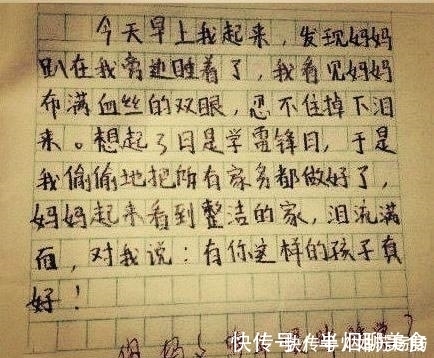 今天早上我起来，发现妈妈
趴在我旁边睡着了，我看见妈妈
布满血丝的双眼，忍不住掉下泪
来。想起了日是学雷锋日，于是
我偷偷地把所有家务都做好了，
妈妈起来看到整洁的家，泪流满
面，对我说：有你这样的孩子真
好！
快传号